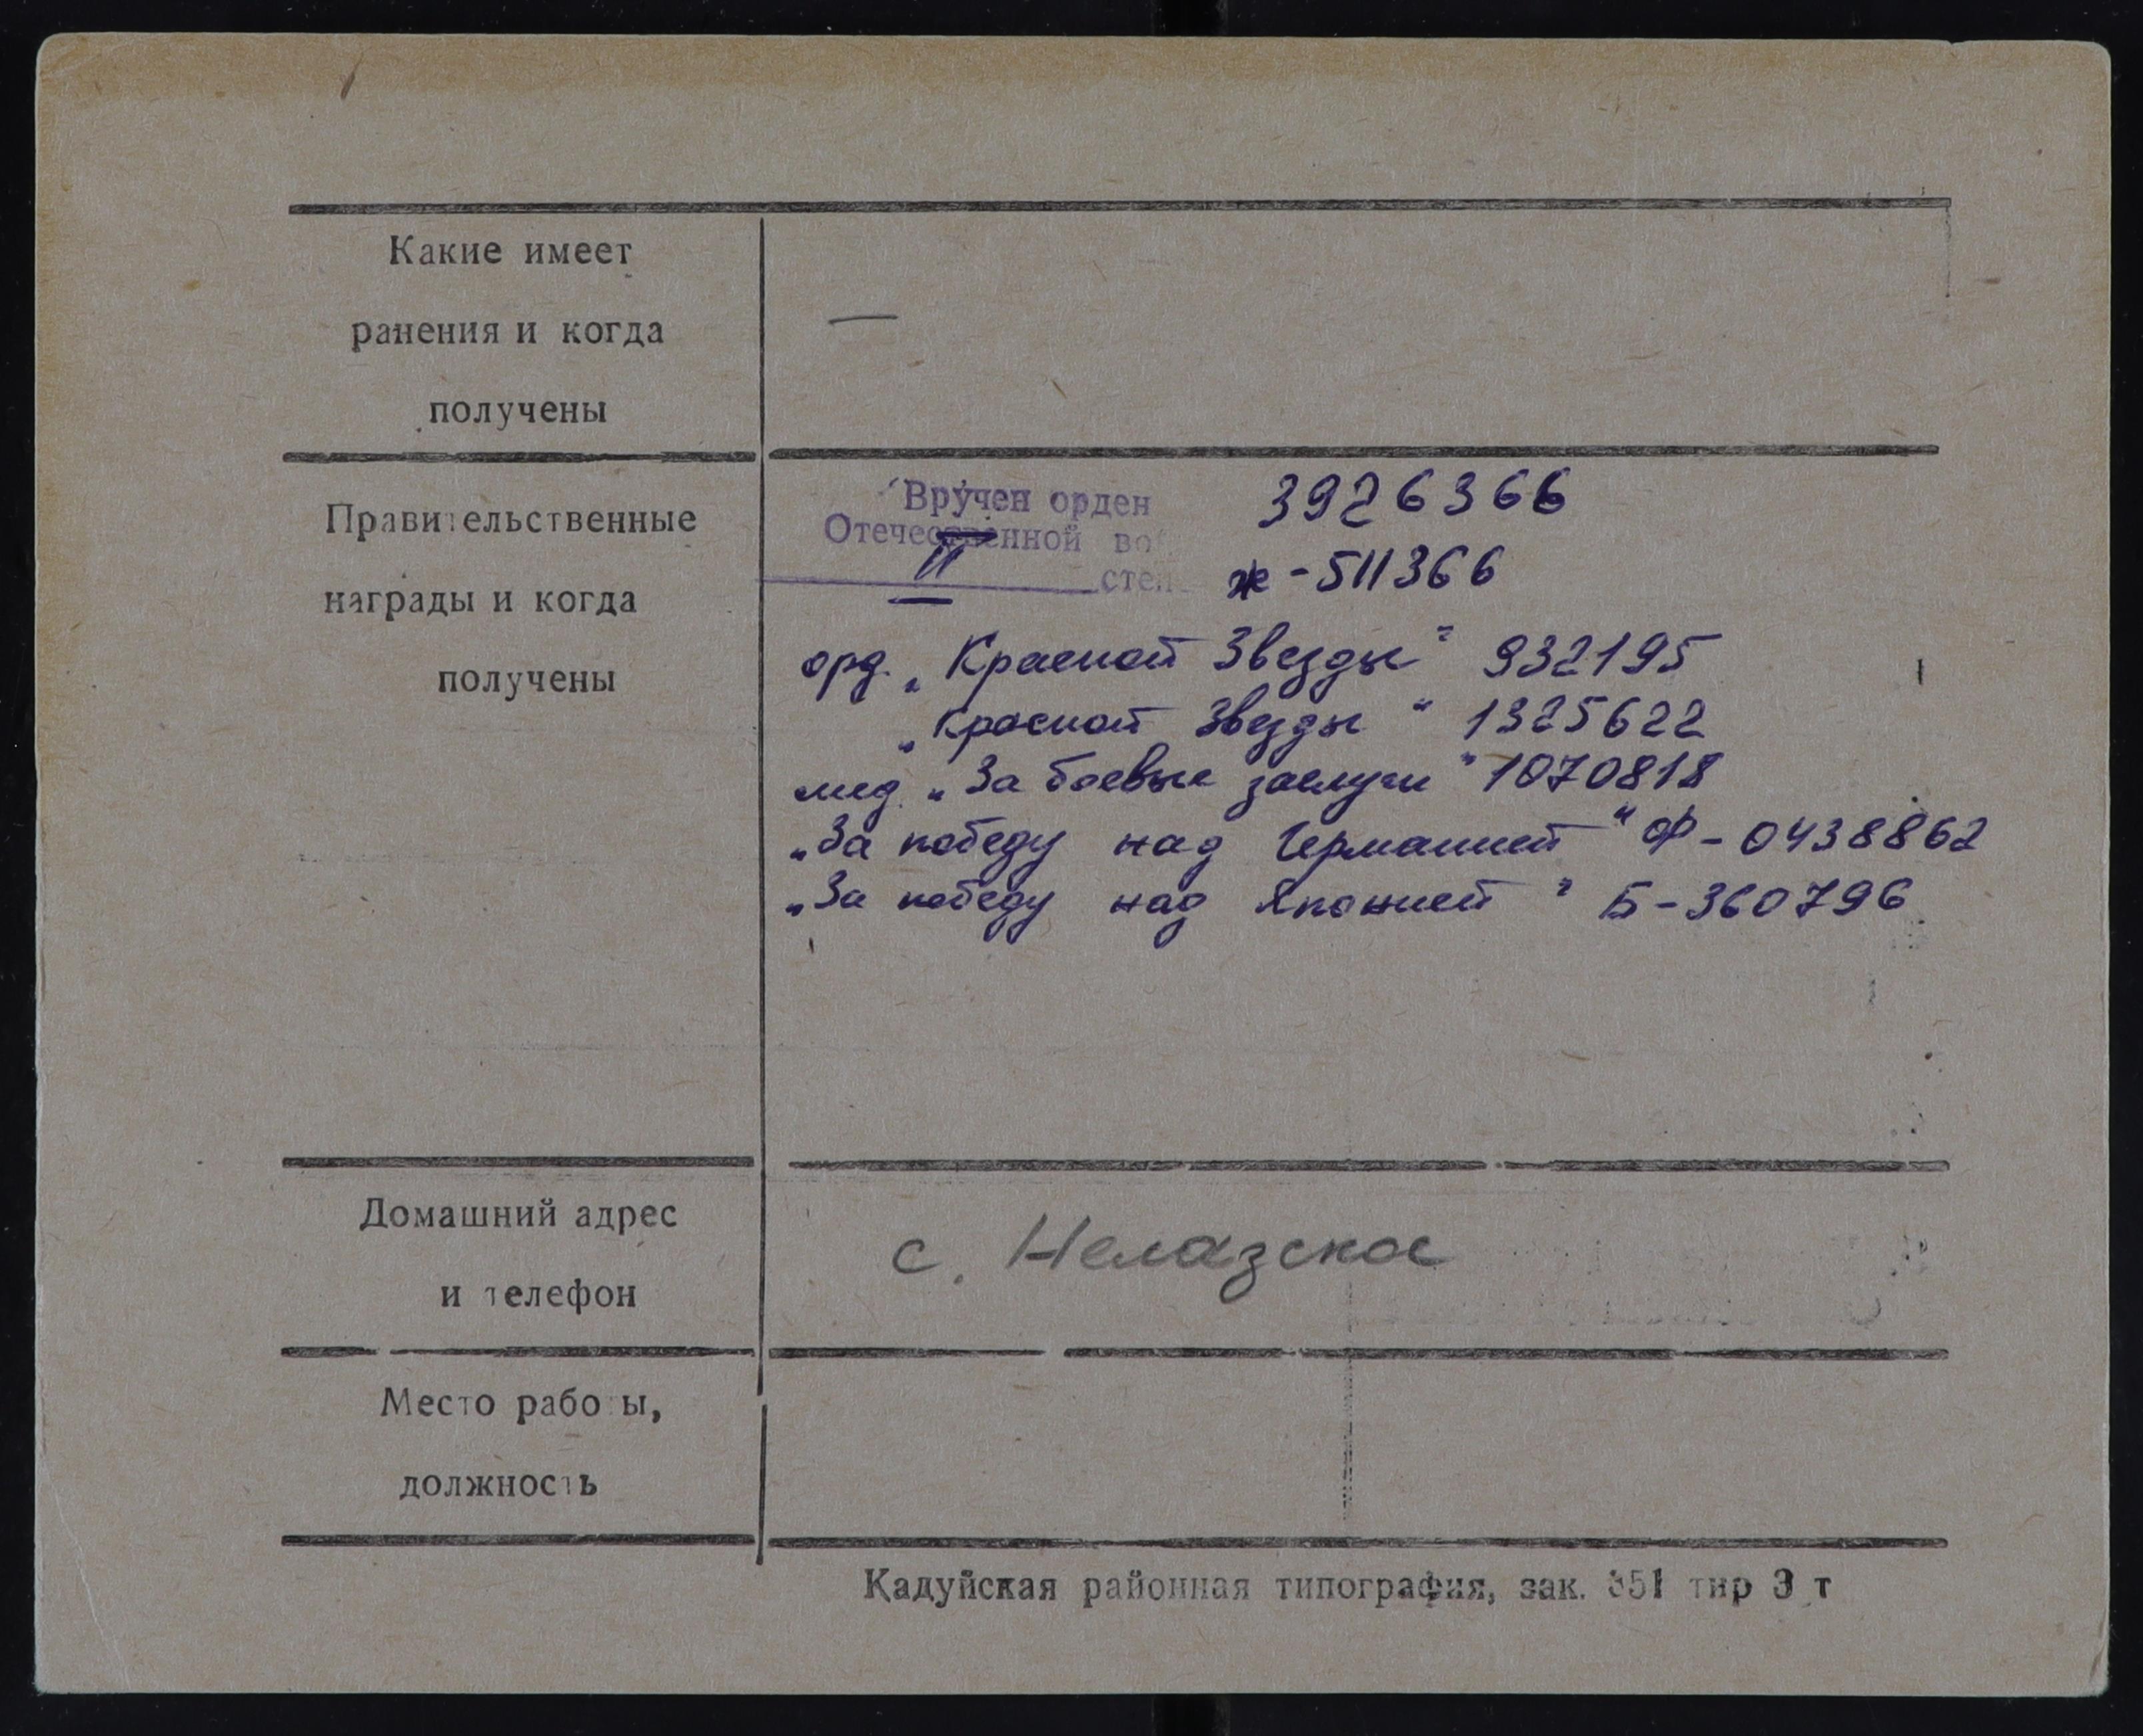 Какие имеет
ранения и когда
получены
—
Правительственные
награды и когда
получены
Вручен орден 3926366
Отечественной во
II степ ж-511366
орд. „Красной Звезды" 932195
„Красной Звезды" 1325622
мед. „За боевые заслуги" 1070818
„За победу над Германией" Ф-0438862
„За победу над Японией" Б-360796
Домашний адрес
и телефон
с. Нелазское
Место работы,
должность
Кадуйская районная типография, зак. 351 тир 3 т